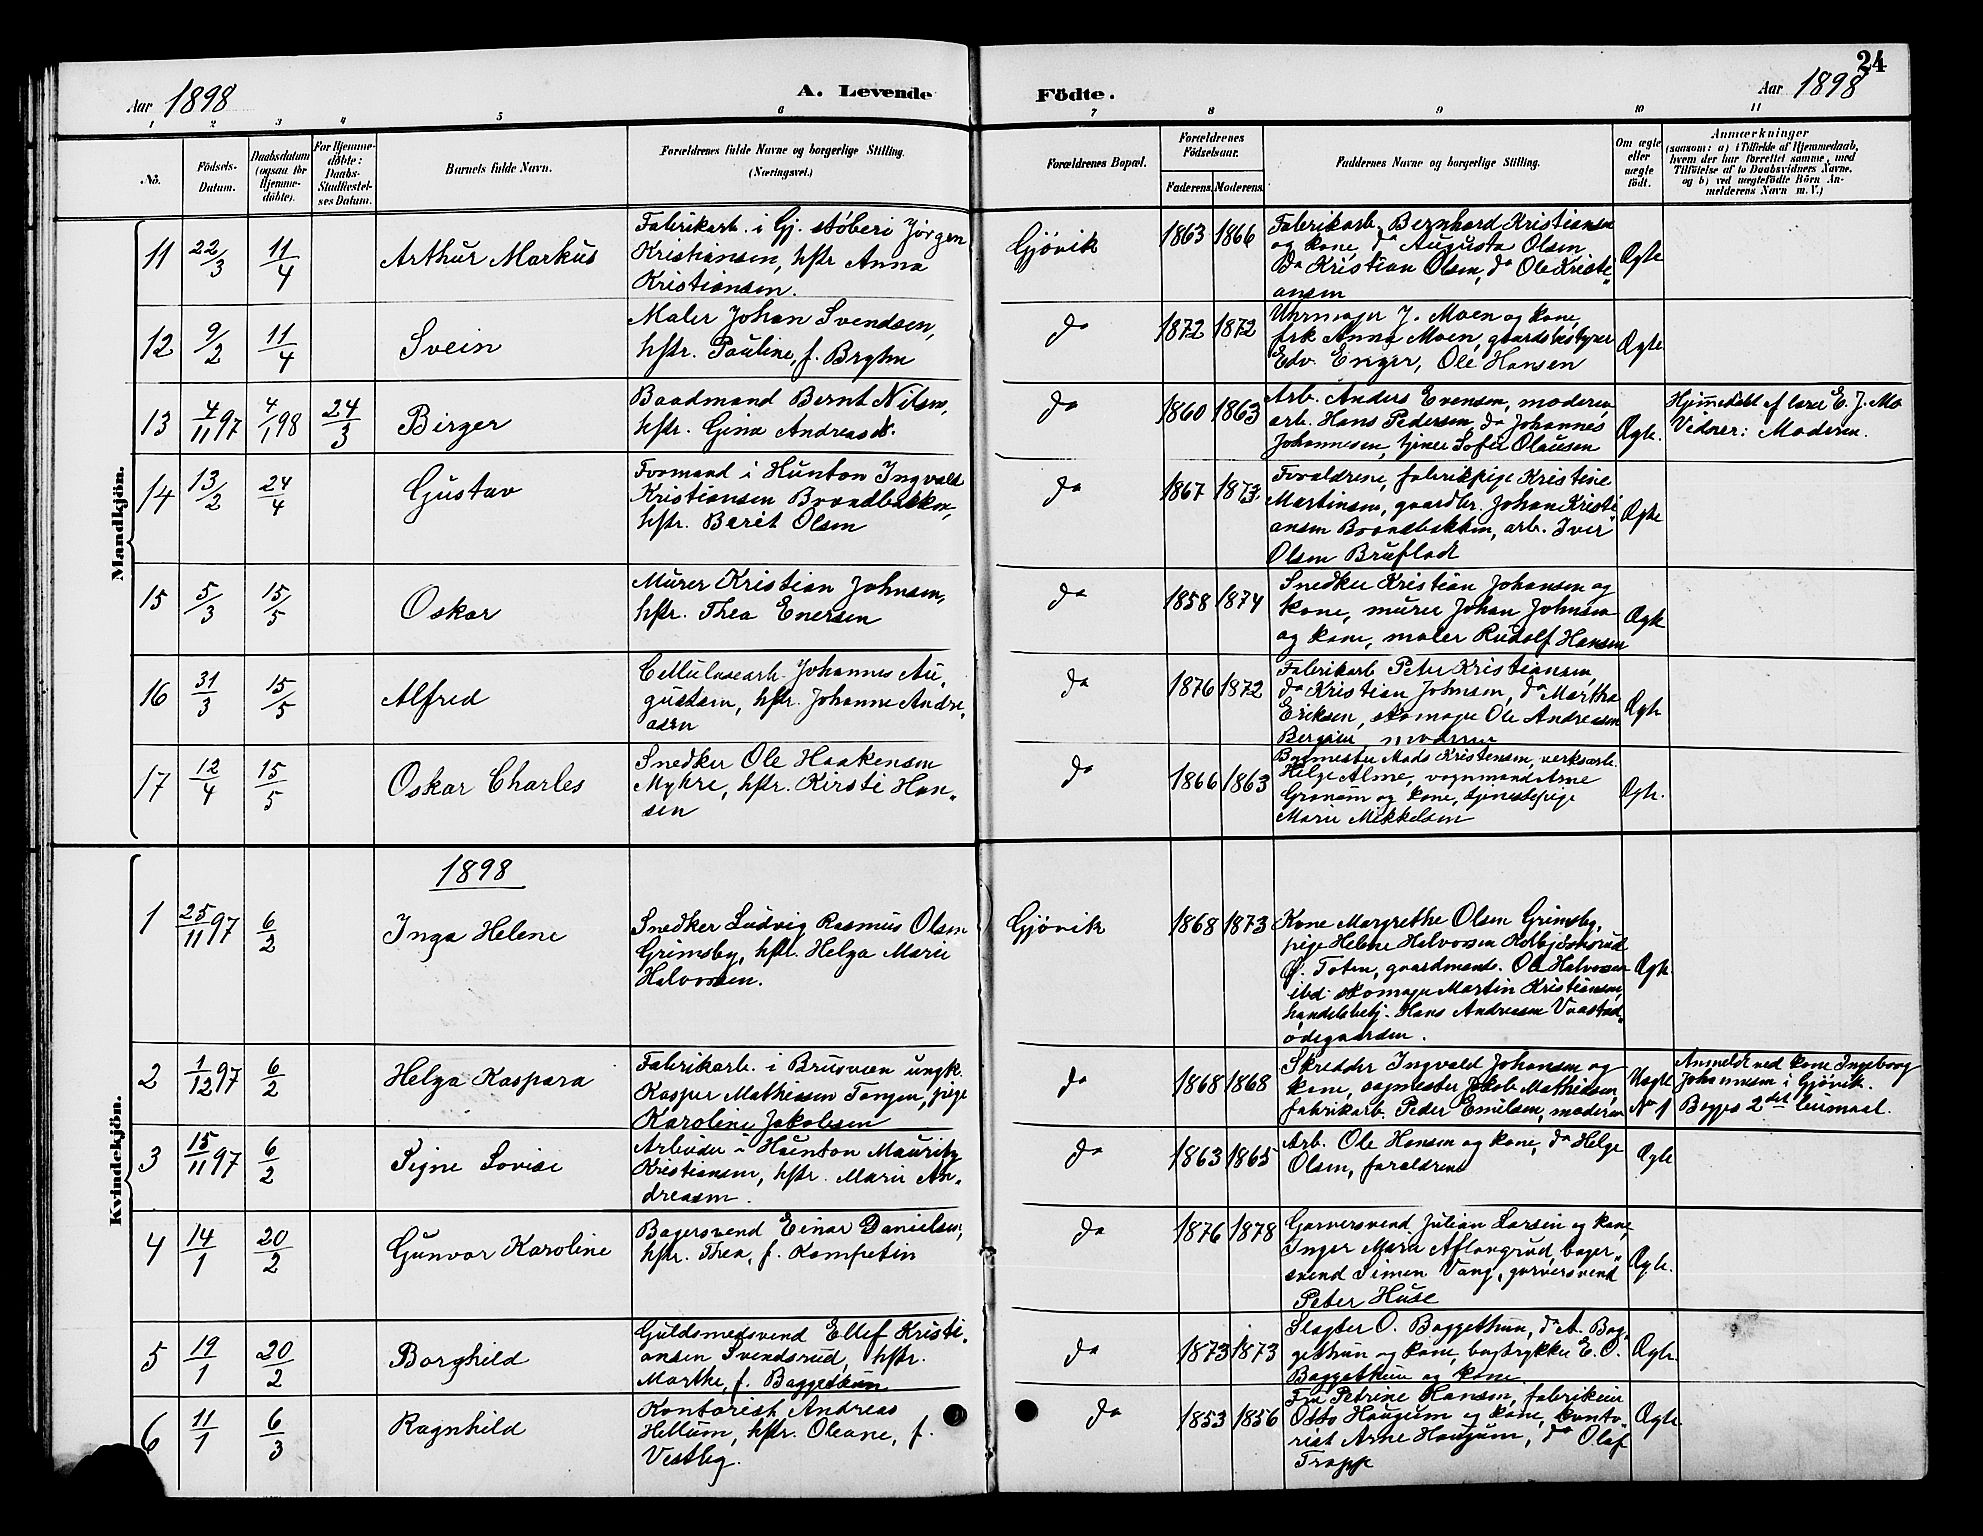 24
Aar 1898
A. Levende
Födte.
Aar 1898
1 2 3 4 5 6 7 8 9 10 11
No.
Födsels-Datum.
Daabsdatum (ogsaa for Hjemmedöbte).
For Hjemmedöbte: Daabs-Stadfæstelses Datum.
Barnets fulde Navn.
Forældrenes fulde Navne og borgerlige Stilling.
(Næringsvei.)
Forældrenes Bopæl.
Forældrenes Födselsaar.
Faderens. Moderens.
Faddernes Navne og borgerlige Stilling.
Om ægte eller uægte födt.
Anmærkninger
(saasom: a) i Tilfælde af Hjemmedaab,
hvem der har forrettet samme, med
Tilföielse af to Daabsvidners Navne,
og b) ved uægtefödte Börn An-
melderens Navn m. V.)
Mandkjön.
11 22/3 11/4 Arthur Markus
Fabrikarb. i Gj. støberi Jørgen
Kristiansen, hstr. Anna
Kristiansen.
Gjøvik 1863 1866
Fabrikarb. Bernhard Kristiansen
og kone, do Augusta Olsen
Do Kristian Olsen, do Ole Kristi
ansen
Ægte
12 9/2 11/4 Svein
Maler Johan Svendsen,
hstr. Pauline, f. Bryhn
do 1872 1872
Uhrmager J. Moen og kone,
frk Anna Moen, gaardsbestyrer
Edv. Enger, Ole Hansen
Ægte
13 4/11 97 4/1 98 24/3 Birger
Baadmand Bernt Nilsen,
hstr. Gina Andreasd.
do 1860 1863
Arb. Anders Evensen, moderen
arb. Hans Pedersen, do Johannes
Johannesen, tjener Sofie Olausen
Ægte.
Hjemmedøbt af lærer E. J. Mo
Vidner: Moderen.
14 13/2 24/4 Gustav
Formand i Hunton Ingvald
Kristiansen Brandbakken,
hstr. Berit Olsen
do 1867 1873
Forældrene, fabrikpige Kristine
Martinsen, gaardbr. Johan Kristi
ansen Brandbakken, arb. Iver
Olsen Brufladt
Ægte
15 5/3 15/5 Oskar
Murer Kristian Johnsen,
hstr. Thea Enersen
do 1858 1874
Snedker Kristian Johansen og
kone, murer Johan Johnsen
og kone, maler Rudolf Hansen
Ægte
16 31/3 15/5 Alfred
Cellulosearb. Johannes Au-
gustsen, hstr. Johanne Andre-
asen
do 1876 1872
Fabrikarb. Peter Kristiansen,
do Kristian Johnsen, do Martha
Eriksen, skomager Ole Andreasen
moderen
Ægte
17 12/4 15/5 Oskar Charles
Snedker Ole Haakensen
Myhre, hstr. Kirsti Han-
sen
do 1866 1863
Mads Kristensen, verksarb.
Helge Alme, vognmand Arne
og kone, tjenestepige
Marie Mikkelsen
Ægte.
Kvindekjön.
1898
1 25/11 97 6/2 Inga Helene
Snedker Ludvig Rasmus Olsen
Grimsby, hstr. Helga Marie
Halvorsen.
Gjøvik 1868 1873
Kone Margrethe Olsen Grimsby,
pige Helene Halvorsen Kolbjørnsrud
Ø. Toten, gaardmands. Ole Halvorsen
ibd. skomager Martin Kristiansen,
handelsbetj. Hans Andreasen
ødegaarden.
Ægte
2 1/12 97 6/2 Helga Kaspara
Fabrikarb. i Brusveen ungk.
Kasper Mathiesen Tangen, pige
Karoline Jakobsen
do 1868 1868
Skrædder Ingvald Johansen og
kone, sagmester Jakob Mathiesen,
fabrikarb. Peder Emilsen, moderen
Uægte
No 1
Anmeldt ved kone Ingeborg
Johannesen i Gjøvik.
Begges 2det leiermaal.
3 15/11 97 6/2 Signe Lovise
Arbeider i Hunton Mauritz
Kristiansen, hstr. Marie An-
dreasen.
do 1863 1865
Arb. Ole Hansen og kone, do Helge
Olsen, forældrene
Ægte
4 14/1 20/2 Gunvor Karoline
Bagersvend Einar Danielsen,
hstr. Thea, f. Kamfetin
do 1876 1878
Garversvend Julian Larsen og kone,
Inger Marie Aflangrud, bager-
svend Simen Vang, garversvend
Peter Huse
Ægte.
5 19/1 20/2 Borghild
Guldsmedsvend Ellef Kristi-
ansen Svendsrud, hstr.
Marthe, f. Baggethun
do 1873 1873
Slagter O. Baggethun, do A. Bag-
gethun og kone, bogtrykker E. O.
Baggethun og kone
Ægte.
6 11/1 6/3 Ragnhild
Kontorist Andreas
Hellum, hstr. Oleane, f.
Vestby.
do 1853 1856
Fru Petrine Hansen, fabrikeier
Otto Haugum og kone, konto-
rist Arne Haugum, do Olaf
Trappe
Ægte.